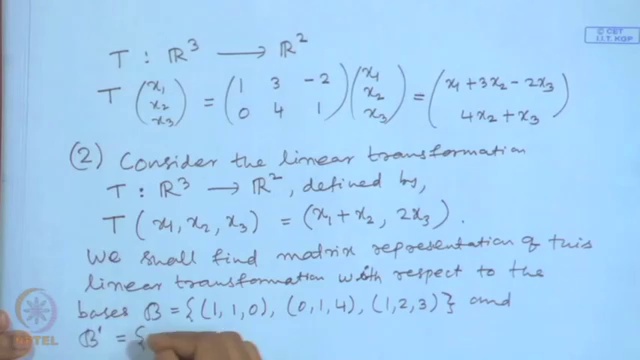 © CET
I.I.T. KGP
T : ℝ³ ⟶ ℝ²
T (x₁ x₂ x₃) = (1 3 -2 0 4 1) (x₁ x₂ x₃) = (x₁ + 3x₂ - 2x₃ 4x₂ + x₃)
(2) Consider the linear transformation
T : ℝ³ ⟶ ℝ², defined by,
T (x₁, x₂, x₃) = (x₁ + x₂, 2x₃).
We shall find matrix representation of this
linear transformation with respect to the
bases B = {(1, 1, 0), (0, 1, 4), (1, 2, 3)} and
B' = {
NPTEL